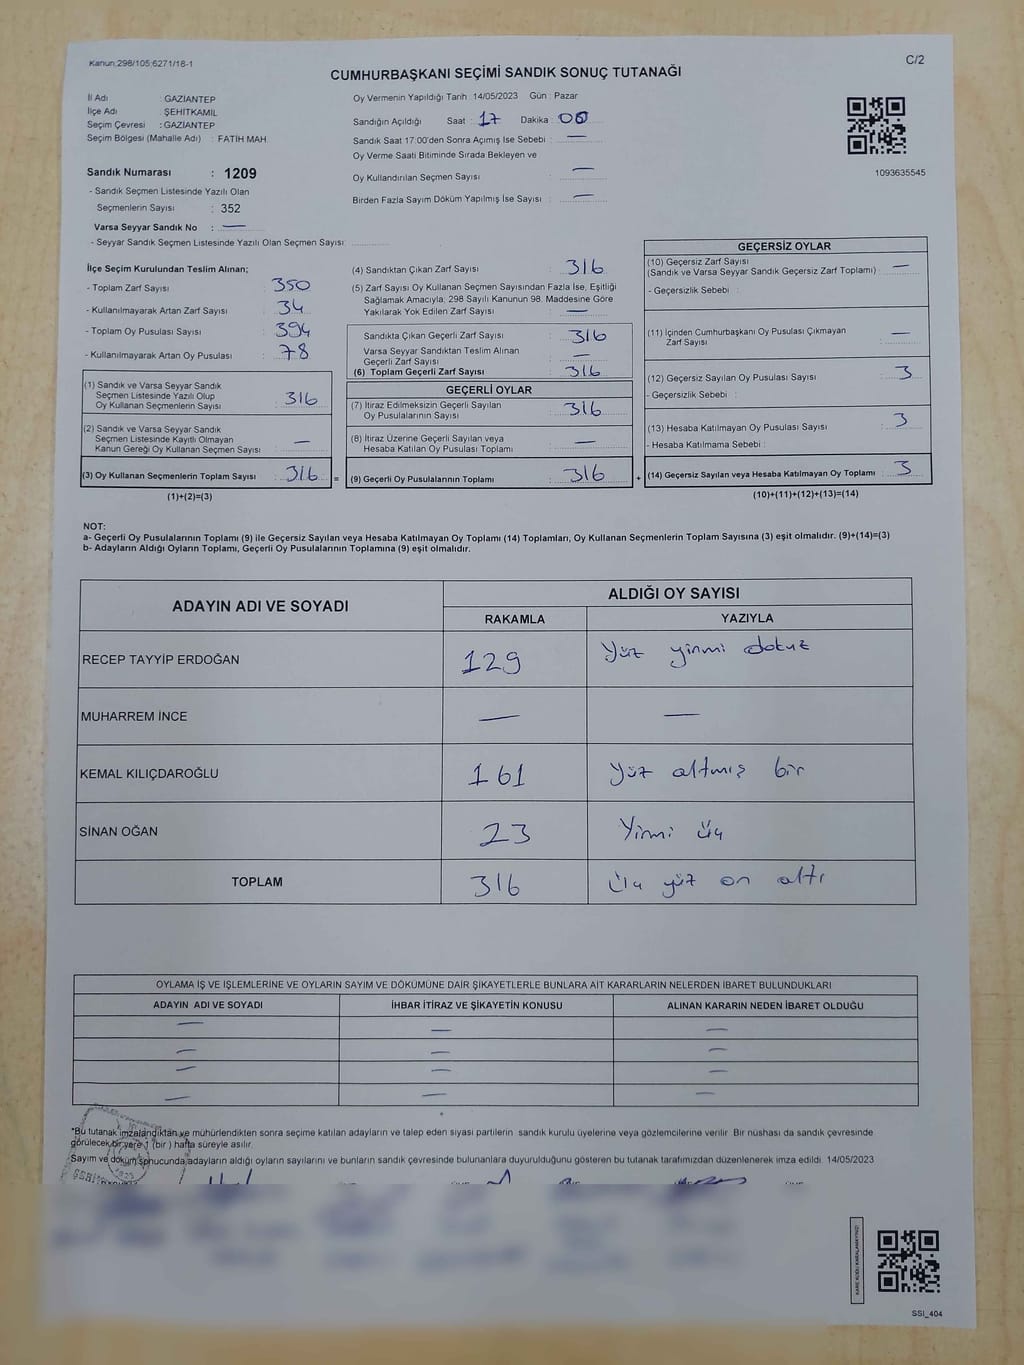 Kanun:298/105:6271/18-1
C/2
CUMHURBAŞKANI SEÇİMİ SANDIK SONUÇ TUTANAĞI
İl Adı : GAZİANTEP
İlçe Adı : ŞEHİTKAMİL
Seçim Çevresi : GAZİANTEP
Seçim Bölgesi (Mahalle Adı) : FATİH MAH.
Sandık Numarası : 1209
- Sandık Seçmen Listesinde Yazılı Olan
Seçmenlerin Sayısı : 352
Varsa Seyyar Sandık No : —
- Seyyar Sandık Seçmen Listesinde Yazılı Olan Seçmen Sayısı:
Oy Vermenin Yapıldığı Tarih :14/05/2023 Gün : Pazar
Sandığın Açıldığı Saat : 17 Dakika : 00
Sandık Saat 17:00'den Sonra Açımış İse Sebebi : —
Oy Verme Saati Bitiminde Sırada Bekleyen ve
Oy Kullandırılan Seçmen Sayısı : —
Birden Fazla Sayım Döküm Yapılmış İse Sayısı : —
1093635545
İlçe Seçim Kurulundan Teslim Alınan;
- Toplam Zarf Sayısı : 350
- Kullanılmayarak Artan Zarf Sayısı : 34
- Toplam Oy Pusulası Sayısı : 394
- Kullanılmayarak Artan Oy Pusulası : 78
(1) Sandık ve Varsa Seyyar Sandık
Seçmen Listesinde Yazılı Olup
Oy Kullanan Seçmenlerin Sayısı : 316
(2) Sandık ve Varsa Seyyar Sandık
Seçmen Listesinde Kayıtlı Olmayan
Kanun Gereği Oy Kullanan Seçmen Sayısı : —
(3) Oy Kullanan Seçmenlerin Toplam Sayısı : 316 =
(1)+(2)=(3)
(4) Sandıktan Çıkan Zarf Sayısı : 316
(5) Zarf Sayısı Oy Kullanan Seçmen Sayısından Fazla İse, Eşitliği
Sağlamak Amacıyla; 298 Sayılı Kanunun 98. Maddesine Göre
Yakılarak Yok Edilen Zarf Sayısı : —
Sandıkta Çıkan Geçerli Zarf Sayısı : 316
Varsa Seyyar Sandıktan Teslim Alınan
Geçerli Zarf Sayısı : —
(6) Toplam Geçerli Zarf Sayısı : 316
GEÇERLİ OYLAR
(7) İtiraz Edilmeksizin Geçerli Sayılan
Oy Pusulalarının Sayısı : 316
(8) İtiraz Üzerine Geçerli Sayılan veya
Hesaba Katılan Oy Pusulası Toplamı : —
(9) Geçerli Oy Pusulalarının Toplamı : 316 +
GEÇERSİZ OYLAR
(10) Geçersiz Zarf Sayısı
(Sandık ve Varsa Seyyar Sandık Geçersiz Zarf Toplamı) : —
- Geçersizlik Sebebi :
(11) İçinden Cumhurbaşkanı Oy Pusulası Çıkmayan
Zarf Sayısı : —
(12) Geçersiz Sayılan Oy Pusulası Sayısı : 3
- Geçersizlik Sebebi :
(13) Hesaba Katılmayan Oy Pusulası Sayısı : 3
- Hesaba Katılmama Sebebi :
(14) Geçersiz Sayılan veya Hesaba Katılmayan Oy Toplamı : 3
(10)+(11)+(12)+(13)=(14)
NOT:
a- Geçerli Oy Pusulalarının Toplamı (9) ile Geçersiz Sayılan veya Hesaba Katılmayan Oy Toplamı (14) Toplamları, Oy Kullanan Seçmenlerin Toplam Sayısına (3) eşit olmalıdır. (9)+(14)=(3)
b- Adayların Aldığı Oyların Toplamı, Geçerli Oy Pusulalarının Toplamına (9) eşit olmalıdır.
ADAYIN ADI VE SOYADI
ALDIĞI OY SAYISI
RAKAMLA YAZIYLA
RECEP TAYYİP ERDOĞAN 129 Yüz yirmi dokuz
MUHARREM İNCE — —
KEMAL KILIÇDAROĞLU 161 Yüz altmış bir
SİNAN OĞAN 23 Yirmi üç
TOPLAM 316 Üç yüz on altı
OYLAMA İŞ VE İŞLEMLERİNE VE OYLARIN SAYIM VE DÖKÜMÜNE DAİR ŞİKAYETLERLE BUNLARA AİT KARARLARIN NELERDEN İBARET BULUNDUKLARI
ADAYIN ADI VE SOYADI İHBAR İTİRAZ VE ŞİKAYETİN KONUSU ALINAN KARARIN NEDEN İBARET OLDUĞU
— — —
— — —
— — —
— — —
*Bu tutanak imzalandıktan ve mühürlendikten sonra seçime katılan adayların ve talep eden siyasi partilerin sandık kurulu üyelerine veya gözlemcilerine verilir. Bir nüshası da sandık çevresinde
görülecek bir yere 1 (bir ) hafta süreyle asılır.
Sayım ve döküm sonucunda,adayların aldığı oyların sayılarını ve bunların sandık çevresinde bulunanlara duyurulduğunu gösteren bu tutanak tarafımızdan düzenlenerek imza edildi. 14/05/2023
KARE KODU KARALAMAYINIZ!
SSI_404